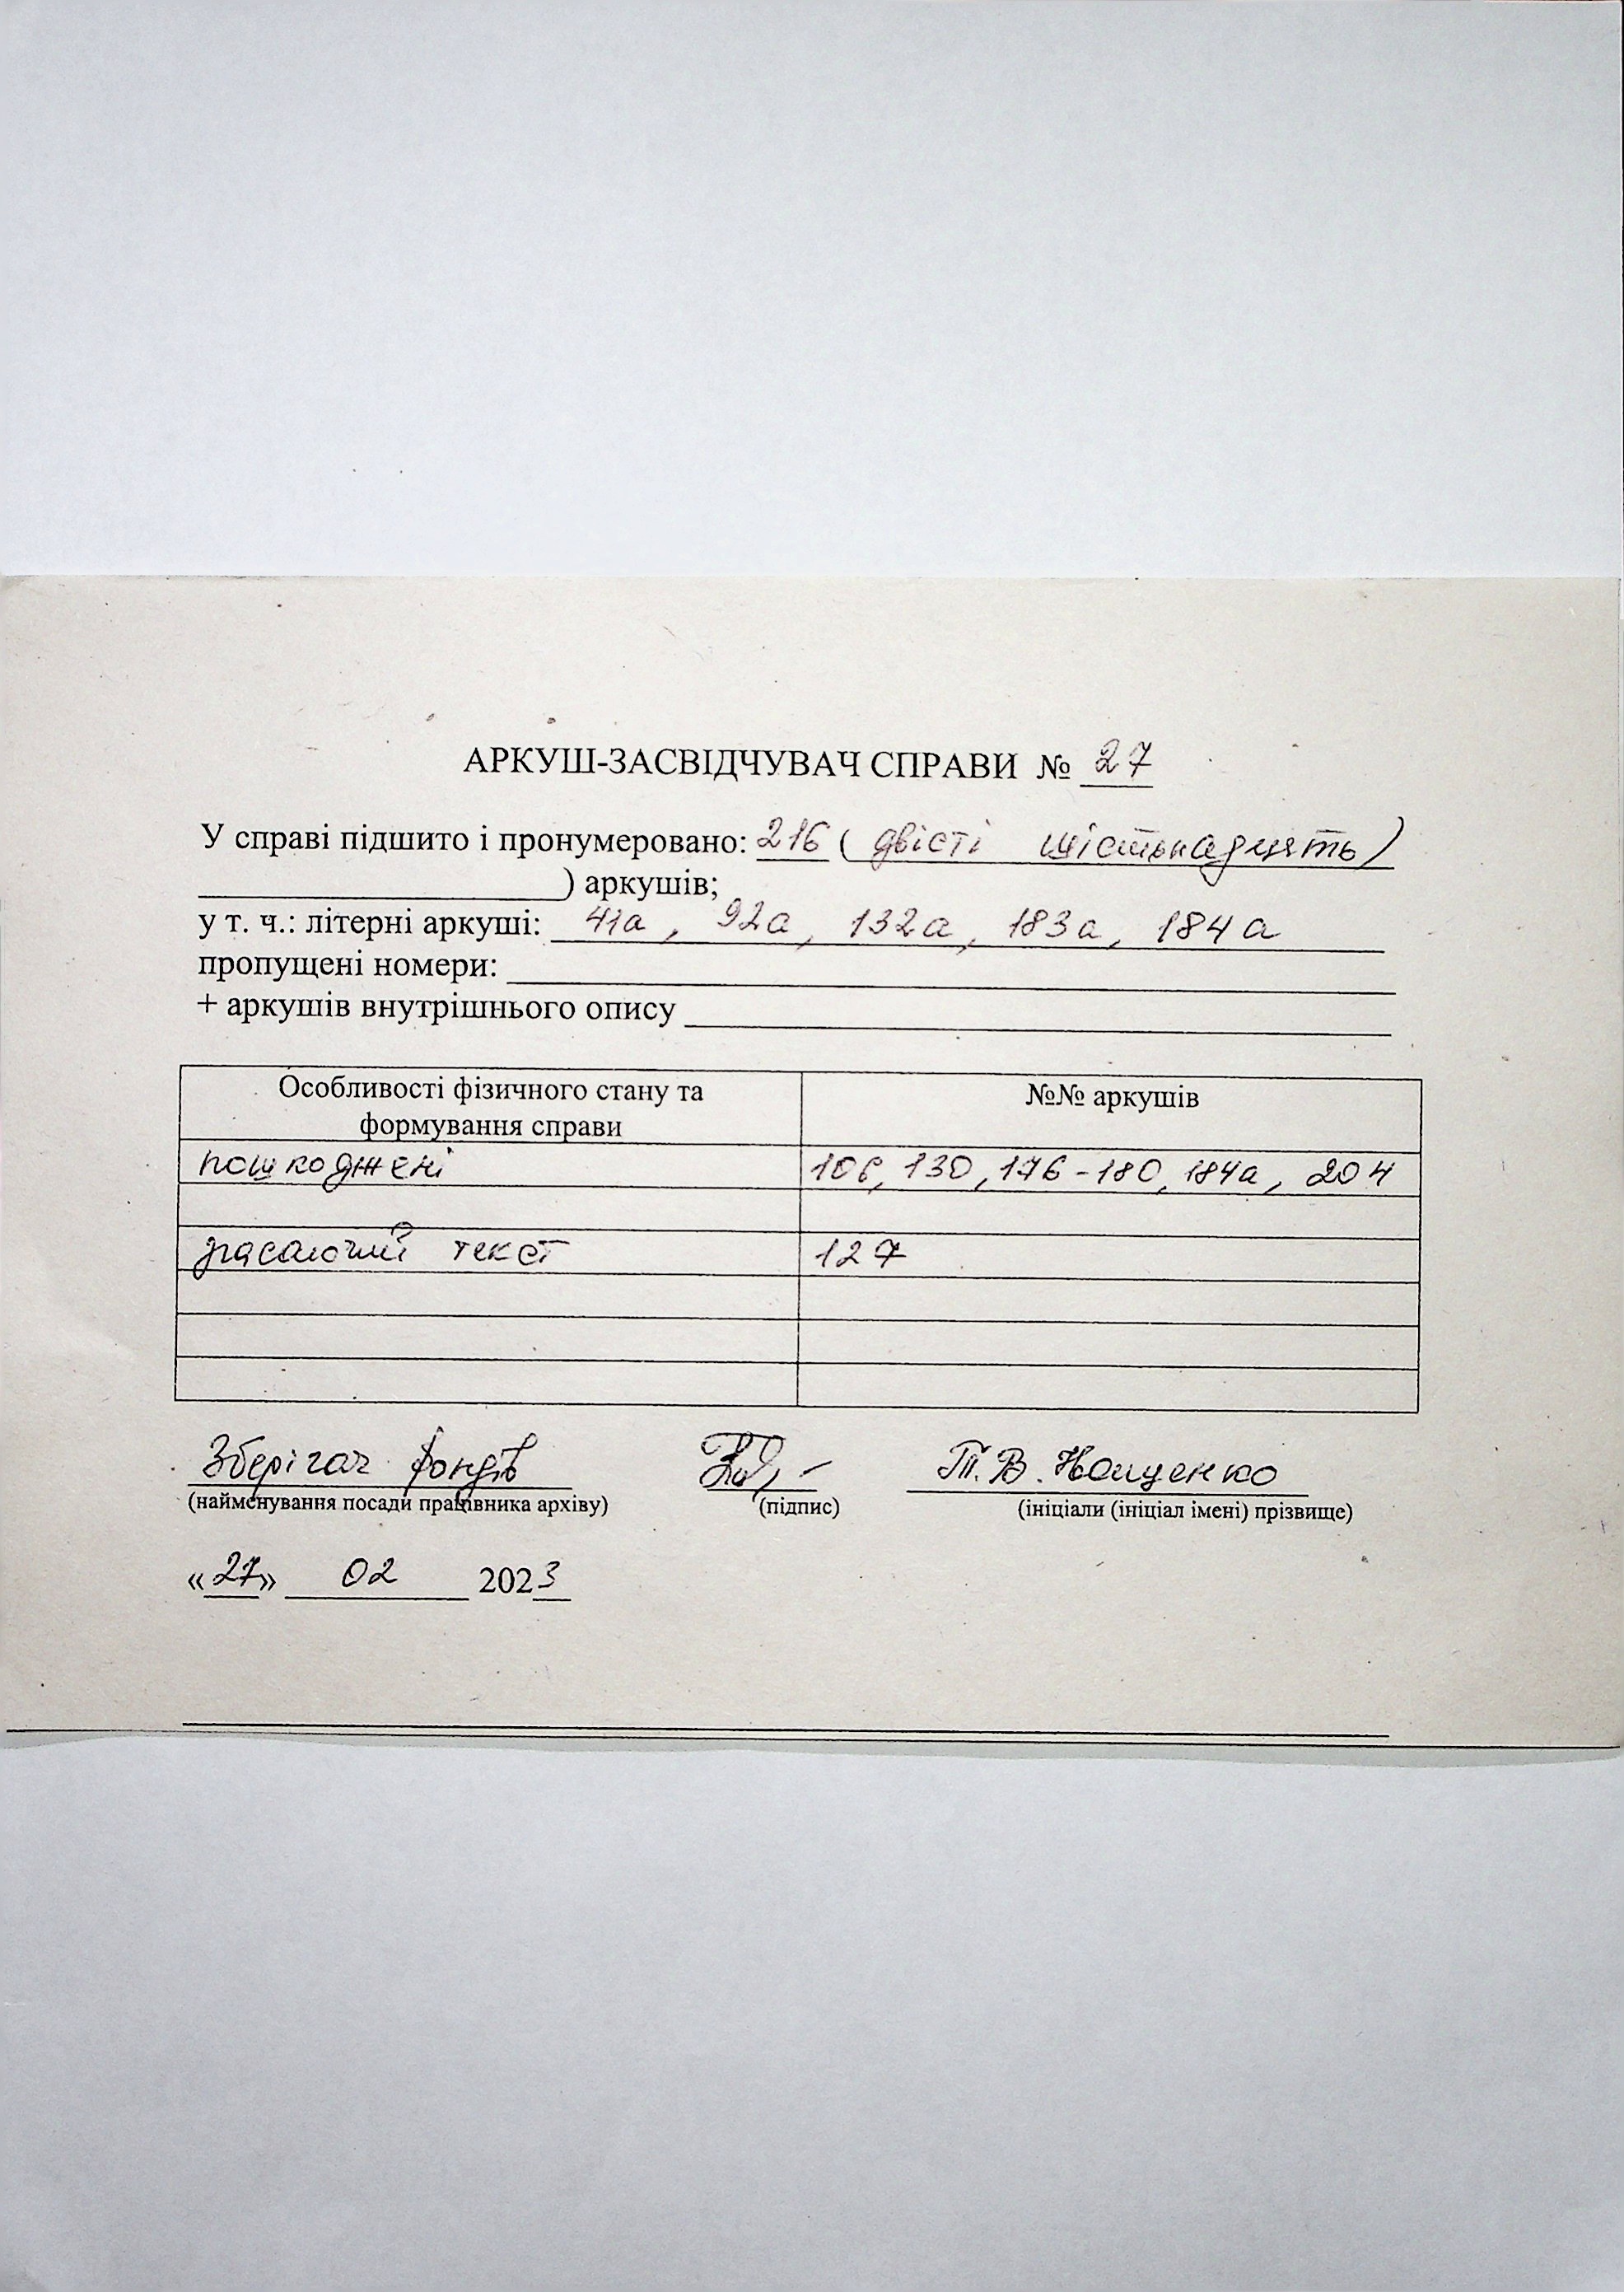 АРКУШ-ЗАСВІДЧУВАЧ СПРАВИ № 27
У справі підшито і пронумеровано: 216 ( двісті шістнадцять)
) аркушів;
у т. ч.: літерні аркуші: 41а, 92а, 132а, 183а, 184а
пропущені номери:
+ аркушів внутрішнього опису
Особливості фізичного стану та №№ аркушів
формування справи
пошкоджені 106, 130, 176-180, 184а, 204
згасаючий текст 127
Зберігач фондів Т.В. Нащенко
(найменування посади працівника архіву) (підпис) (ініціали (ініціал імені) прізвище)
«27» 02 2023